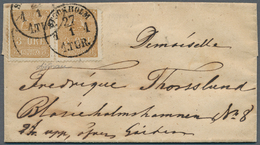 STOCKHOLM
27
1 1
1 TUR.
1 1
1 TUR.
Demoiselle
Fredrique Thorsslund
Blasieholmshamnen No 8
2 tr. upp, öfver Gården